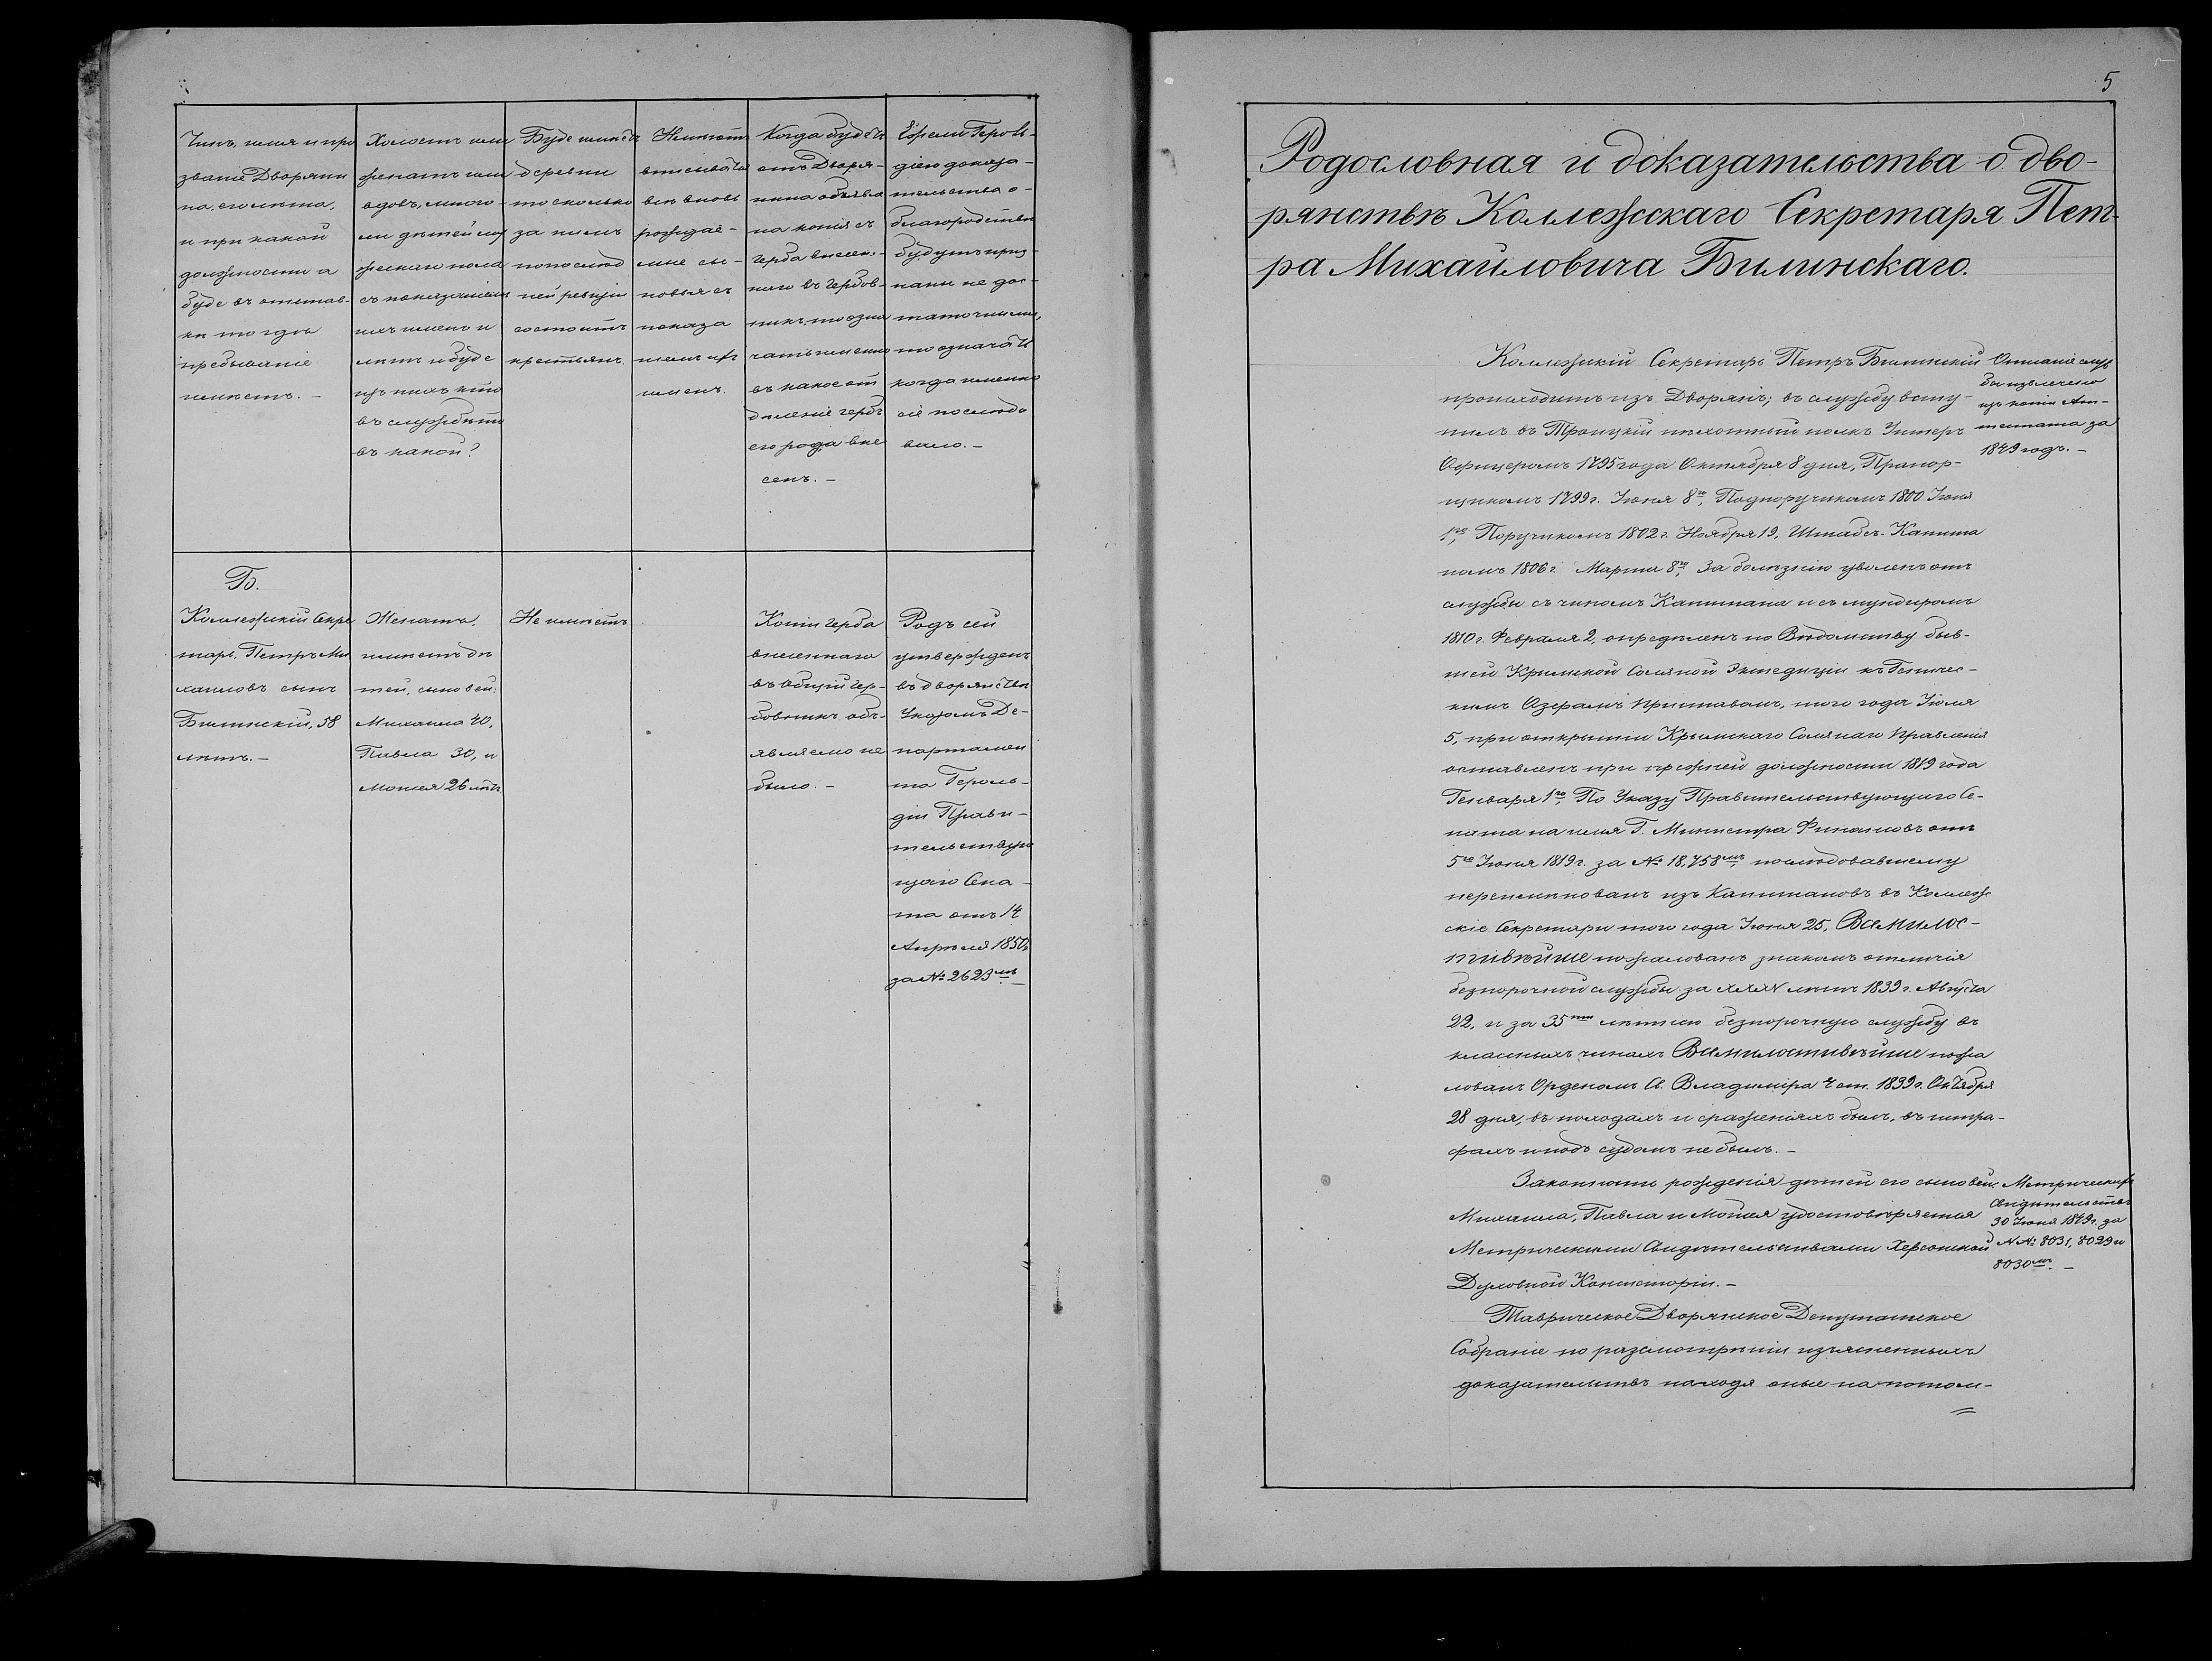 Чинъ, имя и про
званіе Дворяни
на, его лѣта,
и при какой
должности а
буде въ отстав-
кѣ то гдѣ
пребываніе
имѣетъ. –
Холостъ или
женатъ или
вдовъ, много-
ли дѣтей му
жескаго пола
съ показаніемъ
ихъ именъ и
лѣтъ и буде
изъ нихъ кто
въ службѣ то
въ какой?
Буде имѣетъ
деревни
то сколько
за нимъ
по послѣд
ней ревизіи
состоитъ
крестьянъ.
вписывать
всѣ вновь
рождае-
мые сы-
новья съ
показа
ніемъ ихъ
именъ.
Когда будетъ
отъ Дворя-
нина объявле
на копія съ
герба внесен-
наго въ гербов-
никъ, то озна
чать именно
въ какое от
дѣленіе гербъ
его рода вне
сенъ. –
Ежели Героль-
діею доказа-
тельства о-
благородствѣ
будутъ приз-
наны не дос-
таточными,
то означать
когда именно
сіе послѣдо
вало. –
Б.
Коллежскій Секре
тарь, Петръ Ми
хаиловъ сынъ
Билинскій, 58
лѣтъ. –
Женатъ,
имѣетъ дѣ
тей, сыновей:
Михаила 40,
Павла 30, и
Моисея 26 лѣтъ
Не имѣетъ
Копіи герба
внесеннаго
въ общій гер-
бовникъ объ-
являемо не
было. –
Родъ сей
утвержденъ
въ дворянствѣ
Указомъ Де-
партамен
та Героль-
діи Прави-
тельствую
щаго Сена-
та отъ 14
Апрѣля 1850 г.
за № 2623мъ –
5
Родословная и доказательства о дво-
рянствѣ Коллежскаго Секретаря Пет-
ра Михайловича Билинскаго.
Коллежскій Секретарь Петръ Билинскій
происходитъ изъ Дворянъ; въ службу всту-
пилъ въ Троицкій пѣхотный полкъ Унтеръ
Офицеромъ 1795 года Октября 8 дня, Прапор-
щикомъ 1799 г. Іюня 8го, Подпоручикомъ 1800 Іюня
1го, Поручикомъ 1802 г. Ноября 19, Штабсъ-Капита
номъ 1806 г. Марта 8го, За болѣзнію уволенъ отъ
службы съ чиномъ Капитана и съ мундиромъ
1810 г. Февраля 2, опредѣленъ по Вѣдомству быв-
шей Крымской Соляной Экспедиціи къ Геничес-
кимъ Озерамъ Приставомъ, того года Іюля
5, при открытіи Крымскаго Солянаго Правленія
оставленъ при прежней должности 1819 года
Генваря 1го, По Указу Правительствующаго Се-
ната на имя Г. Министра Финансовъ отъ
5го Іюня 1819 г. за № 18,758мъ, послѣдовавшему
переименованъ изъ Капитановъ въ Коллеж
скіе Секретари того года Іюня 25, Всемилос-
тивѣйше пожалованъ знакомъ отличія
безпорочной службы за XXXV лѣтъ 1839 г. Августа
22, и за 35ти лѣтнюю безпорочную службу въ
классныхъ чинахъ Всемилостивѣйше пожа
лованъ Орденомъ Св. Владиміра 4 ст. 1839 г. Октября
28 дня, въ походахъ и сраженіяхъ былъ, въ штра-
фахъ и подъ судомъ не былъ. –
Описаніе служ
бы извлечено
изъ копіи Ат-
тестата за
1849 годъ. –
Законность рожденія дѣтей его сыновей
Михаила, Павла и Моисея удостовѣряется
Метрическими Свидѣтельствами Херсонской
Духовной Консисторіи. –
Метрическія
Свидѣтельства
30 Іюня 1849 г. за
№№ 8031, 8029 и
8030мъ. –
Таврическое Дворянское Депутатское
Собраніе по разсмотрѣніи изъясненныхъ
доказательствъ находя оные на потом-